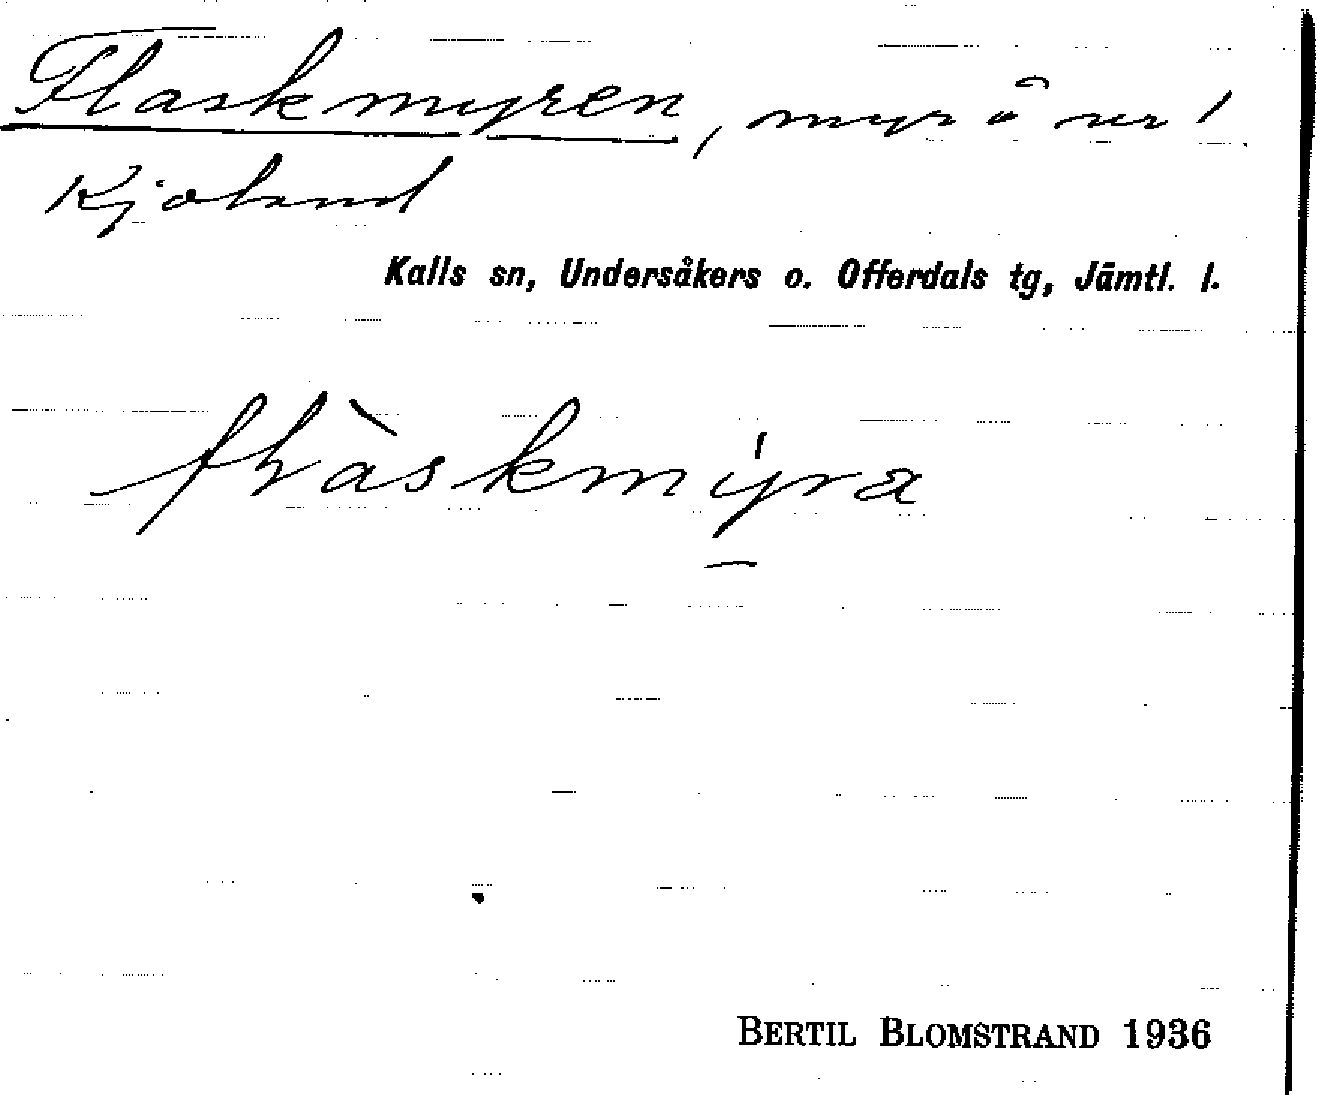 Flaskmyren, myr å nr 1
Kjoland
Kalls sn, Undersåkers o. Offerdals tg, Jämtl. l.
flàskmýra
BERTIL BLOMSTRAND 1936